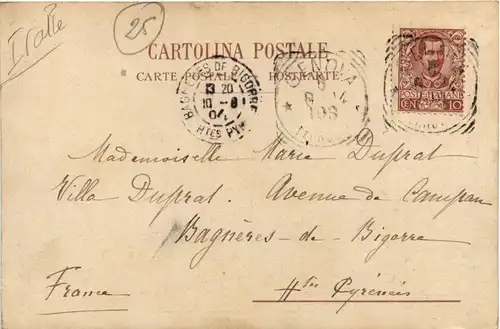 Italie
25
CARTOLINA POSTALE
CARTE POSTALE POSTKARTE
BAGNERES DE BIGORRE
13 20
10 - 8
04
HTES PYR
GENOVA
POSTE ITALIANE
CEN 10
Mademoiselle Marie Duprat
Villa Duprat. Avenue de Campan
Bagnères-de-Bigorre
France Htes Pyrénées